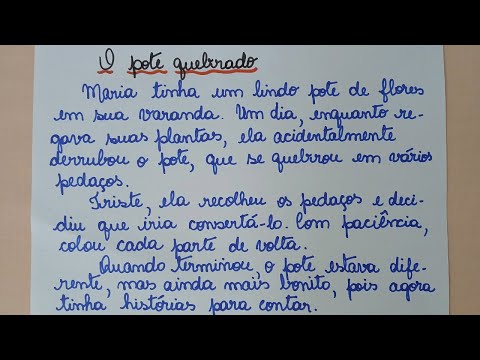 O pote quebrado
Maria tinha um lindo pote de flores
em sua varanda. Um dia, enquanto re-
gava suas plantas, ela acidentalmente
derrubou o pote, que se quebrou em vários
pedaços.
Triste, ela recolheu os pedaços e deci-
diu que iria consertá-lo. Com paciência,
colou cada parte de volta.
Quando terminou, o pote estava dife-
rente, mas ainda mais bonito, pois agora
tinha histórias para contar.